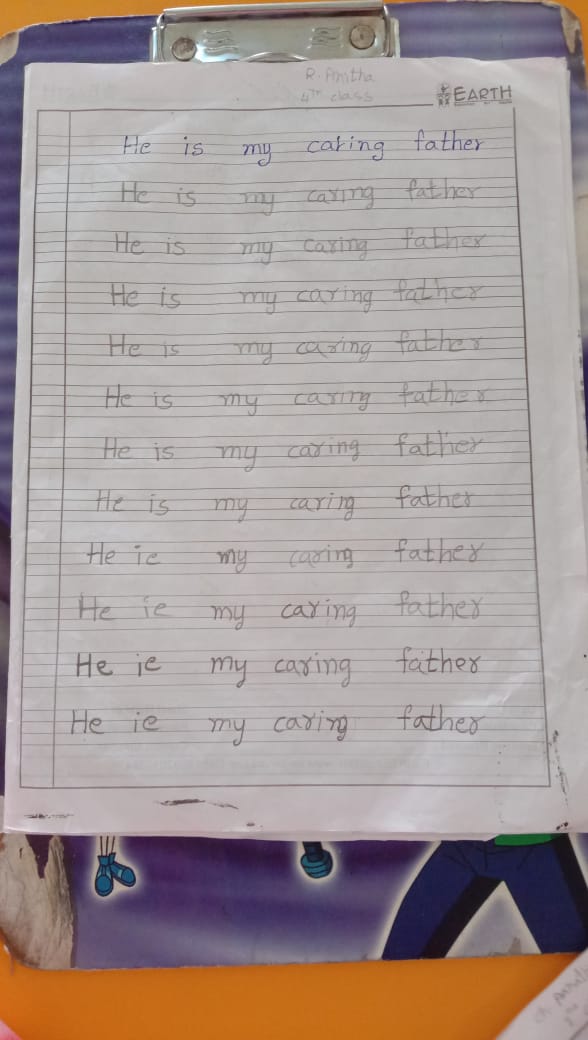 R. Anitha
4th class
EARTH
He is my caring father
He is my caring father
He is my caring father
He is my caring father
He is my caring father
He is my caring father
He is my caring father
He is my caring father
He ie my caring father
He ie my caring father
He ie my caring father
He ie my caring father